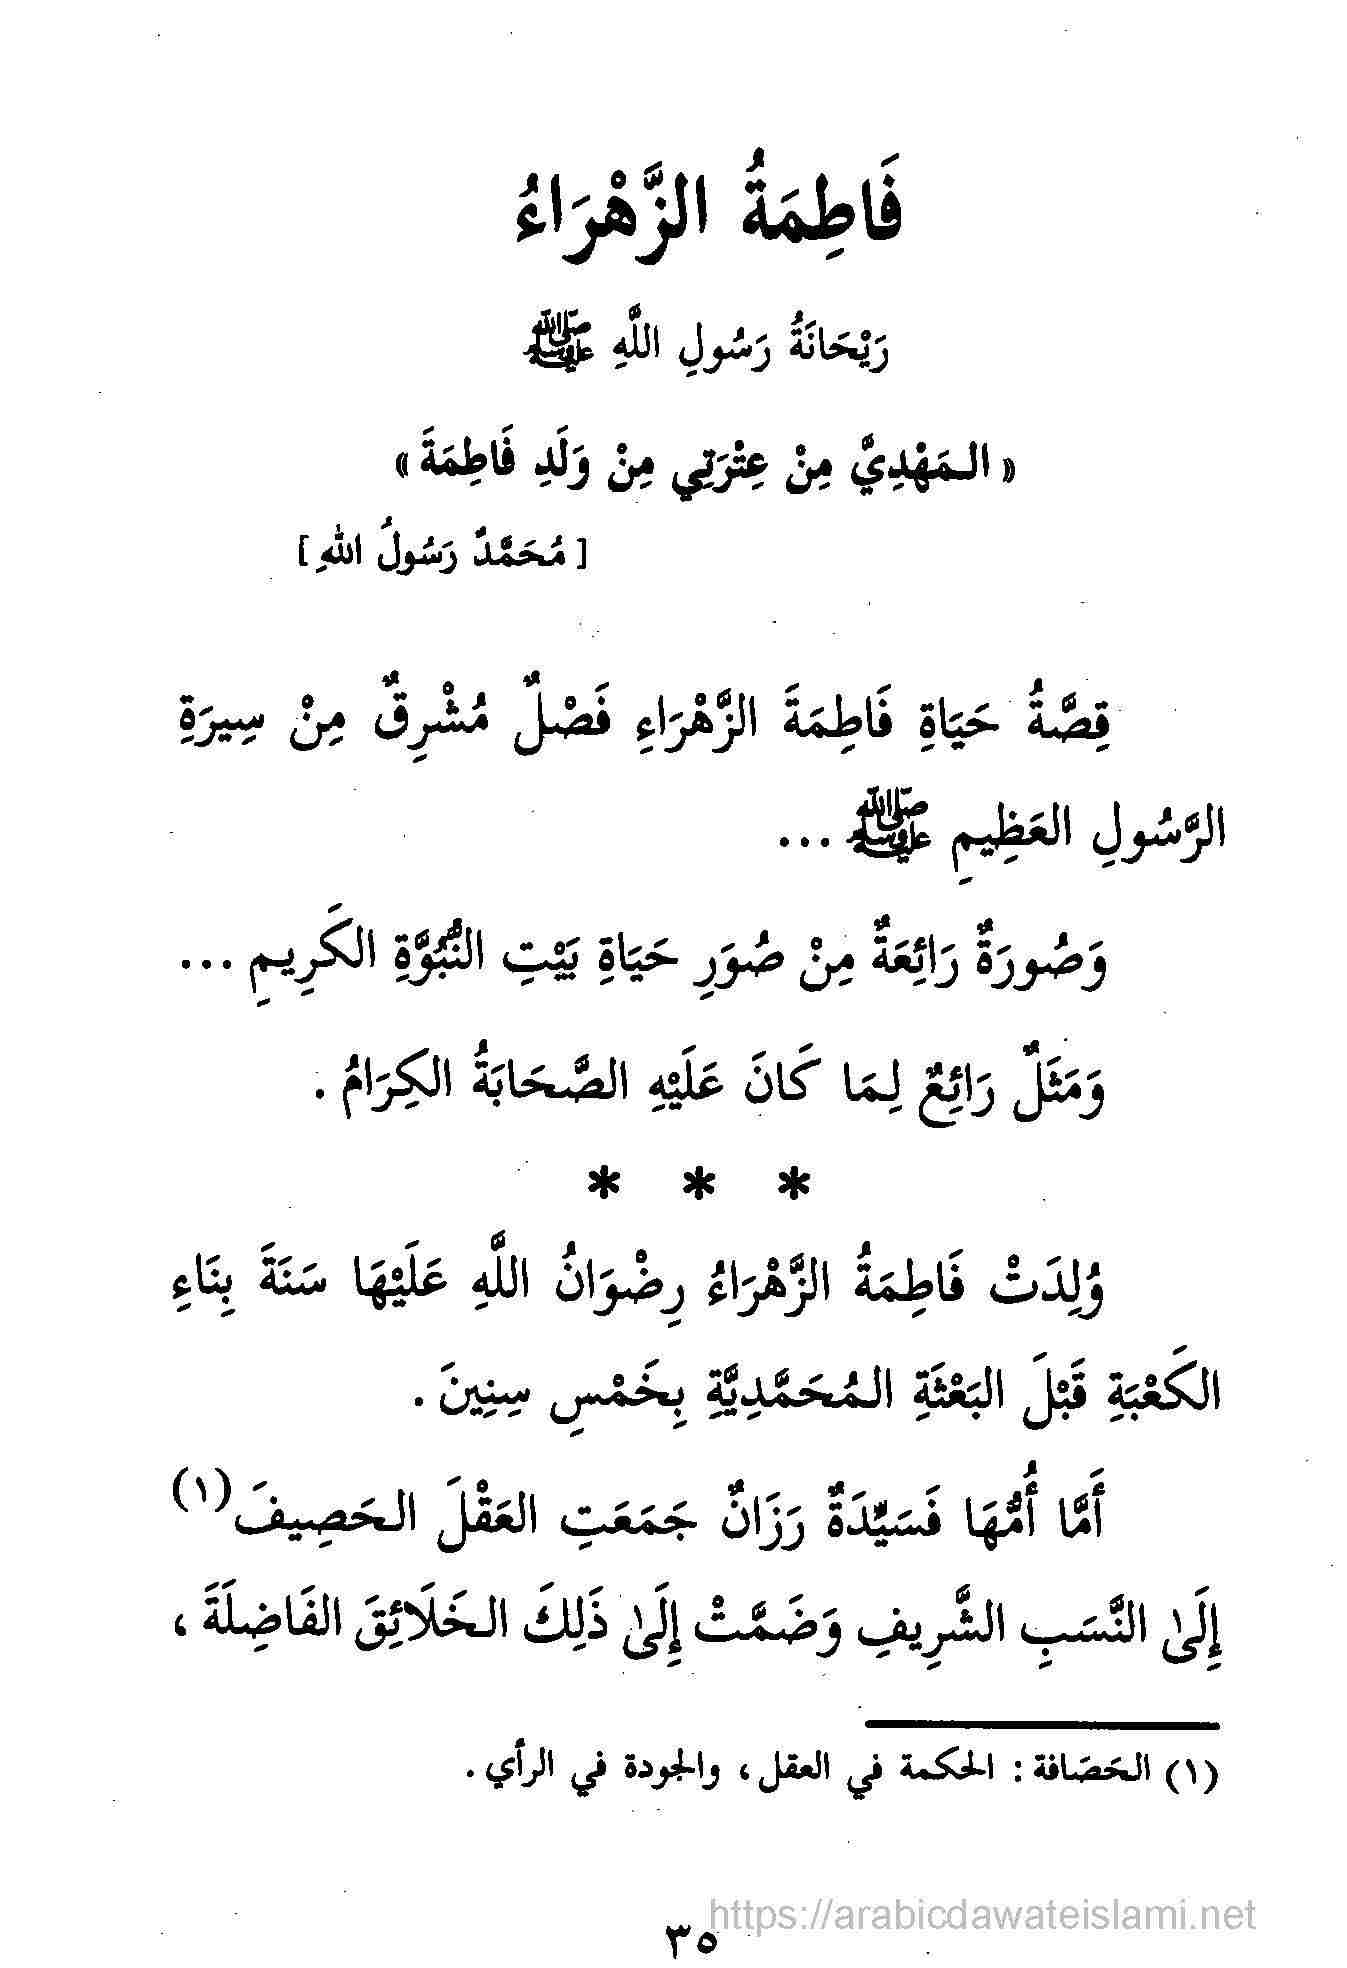 فَاطِمَةُ الزَّهْرَاءُ
رَيْحَانَةُ رَسُولِ اللَّهِ ﷺ
« الـمَهْدِيُّ مِنْ عِتْرَتِي مِنْ وَلَدِ فَاطِمَةَ »
[ مُحَمَّدٌ رَسُولُ اللهِ ]
قِصَّةُ حَيَاةِ فَاطِمَةَ الزَّهْرَاءِ فَصْلٌ مُشْرِقٌ مِنْ سِيرَةِ
الرَّسُولِ العَظِيمِ ﷺ ...
وَصُورَةٌ رَائِعَةٌ مِنْ صُوَرِ حَيَاةِ بَيْتِ النُّبُوَّةِ الكَرِيمِ ...
وَمَثَلٌ رَائِعٌ لِـمَا كَانَ عَلَيْهِ الصَّحَابَةُ الكِرَامُ .
* * *
وُلِدَتْ فَاطِمَةُ الزَّهْرَاءُ رِضْوَانُ اللَّهِ عَلَيْهَا سَنَةَ بِنَاءِ
الكَعْبَةِ قَبْلَ البَعْثَةِ الـمُحَمَّدِيَّةِ بِخَمْسِ سِنِينَ .
أَمَّا أُمُّهَا فَسَيِّدَةٌ رَزَانٌ جَمَعَتِ العَقْلَ الـحَصِيفَ (١)
إِلَىٰ النَّسَبِ الشَّرِيفِ وَضَمَّتْ إِلَىٰ ذَلِكَ الـخَلَائِقَ الفَاضِلَةَ ،
(١) الـحَصَافة : الحكمة في العقل ، والجودة في الرأي .
https://arabicdawateislami.net
٣٥